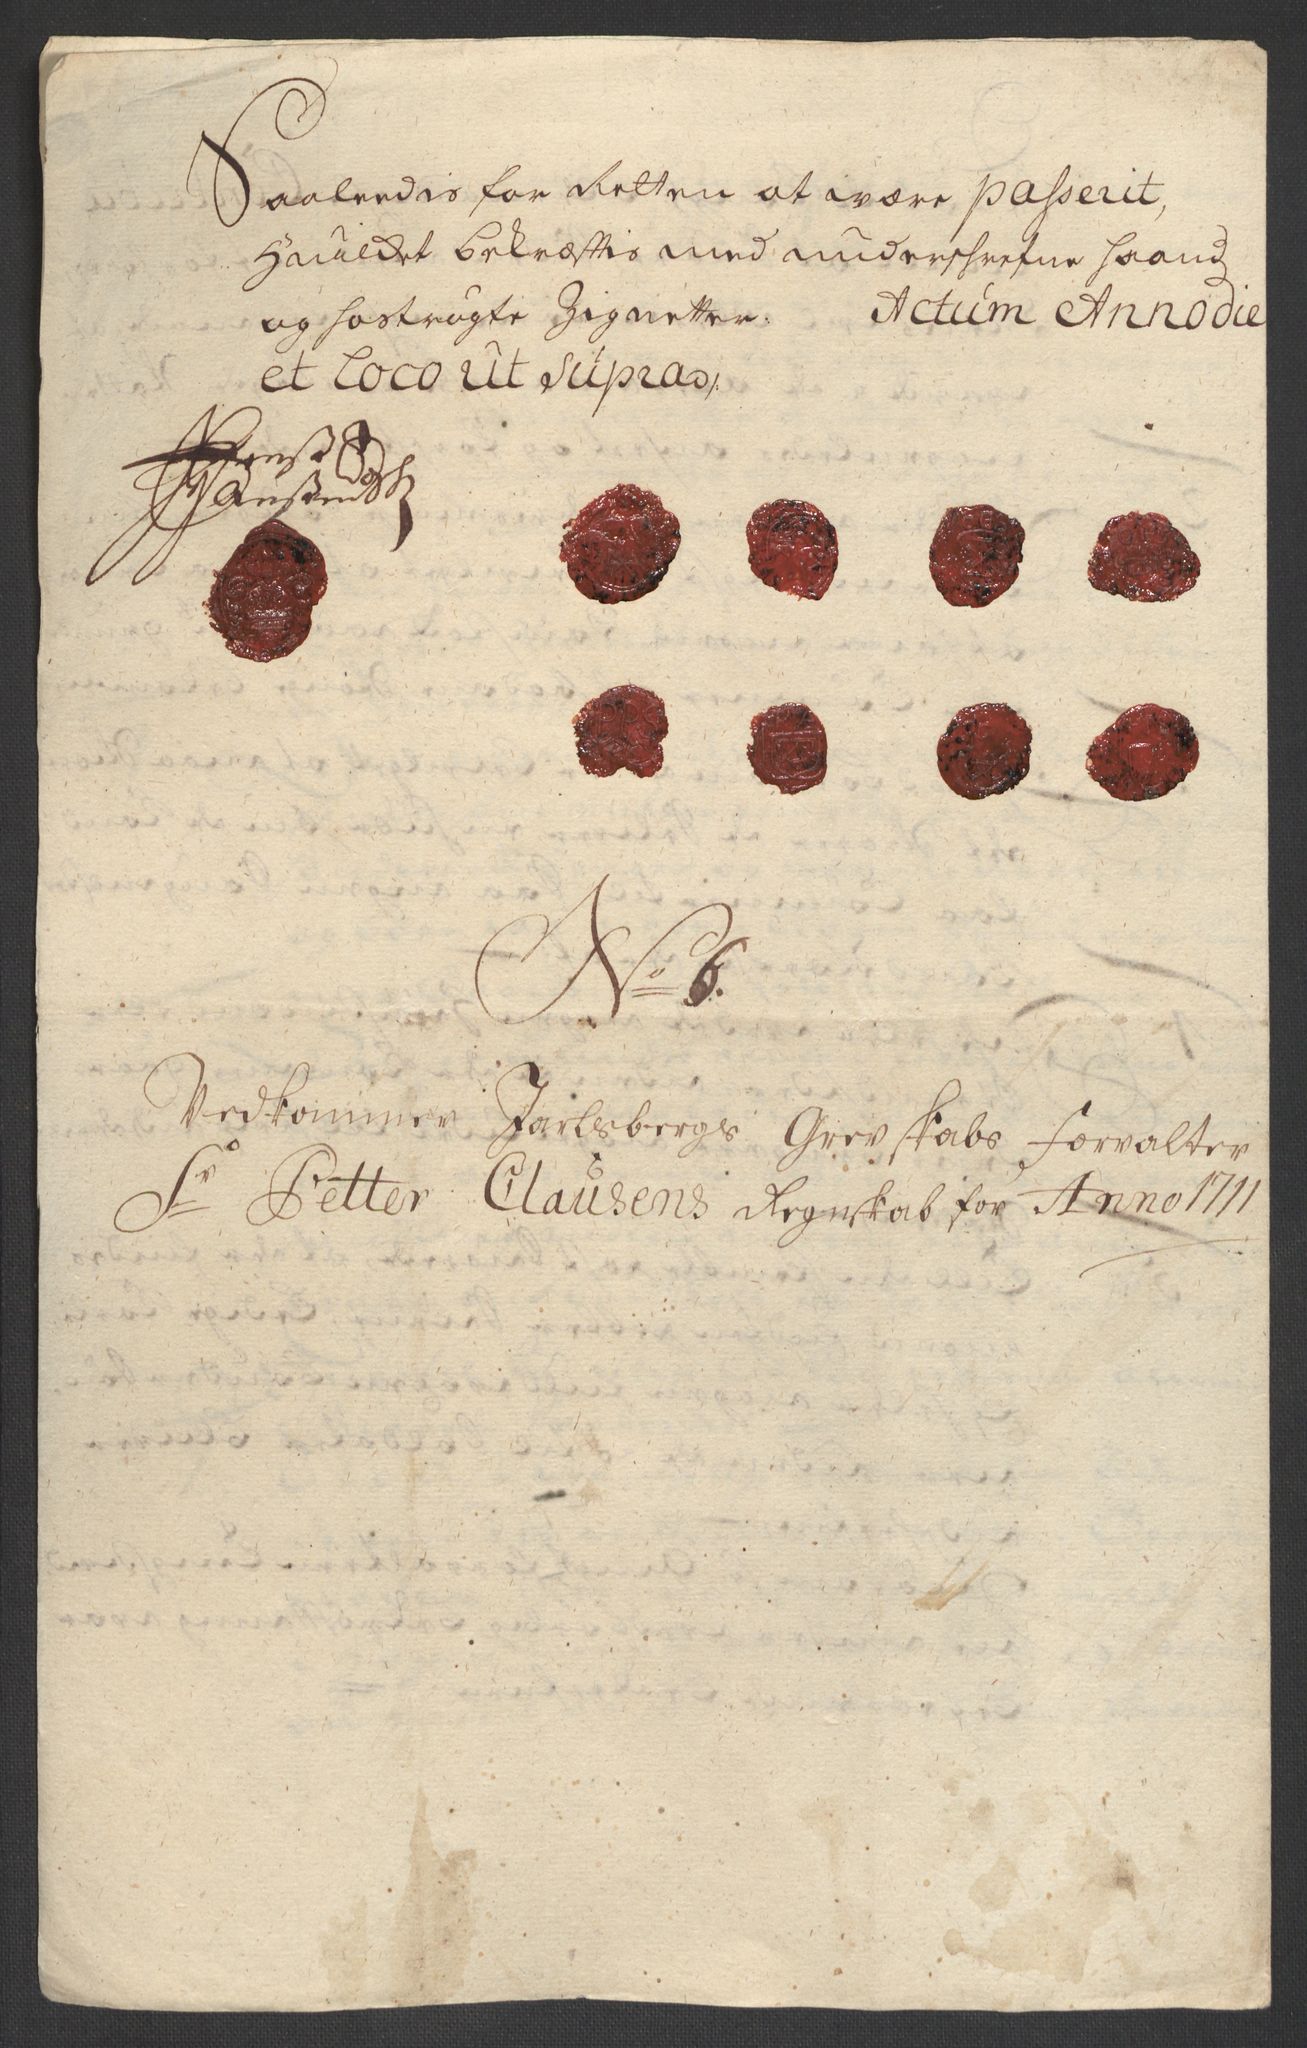 Saaleedis for Retten at være passerit,
Hvilchet bekræftis med underschrefne haand
og hostrøgte Zignetter. Actum Anno die
et Loco ut supra
No 6.
Vedkommer Jarlsbergs Grevskabs forvalter
Sr Petter Clausens Regnskab for Anno 1711